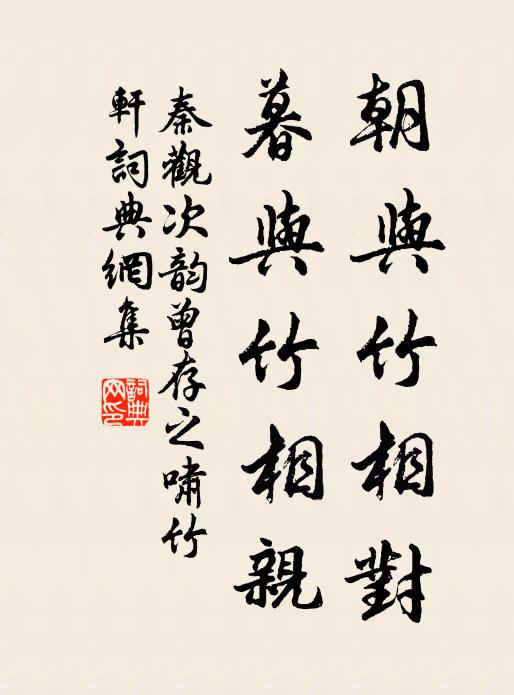 朝與竹相對
暮與竹相親
秦觀次韵曾存之嘯竹
軒詞典網集
詞典
网印